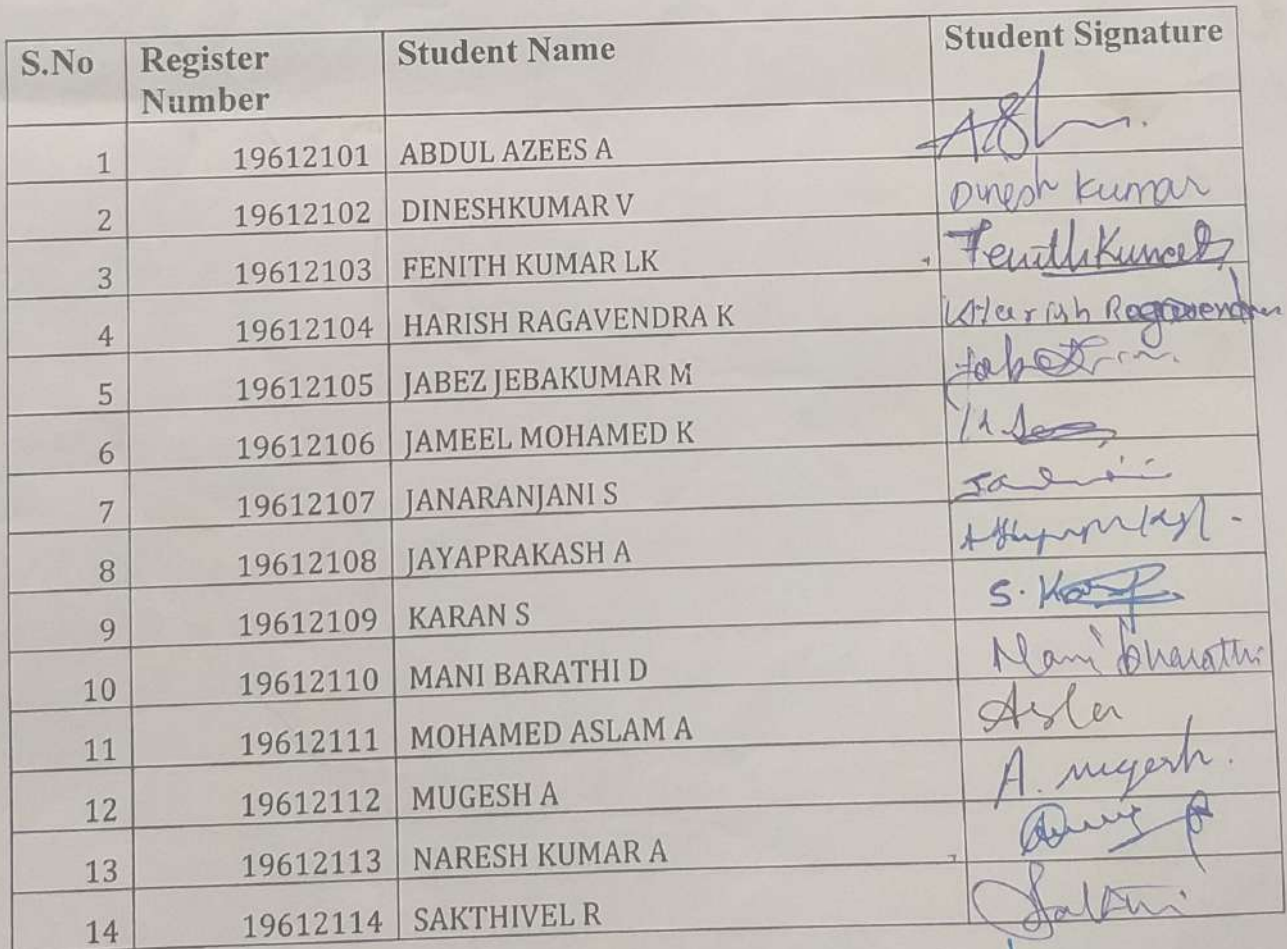 S.No Register Number Student Name Student Signature
1 19612101 ABDUL AZEES A
2 19612102 DINESHKUMAR V Dinesh Kumar
3 19612103 FENITH KUMAR LK
4 19612104 HARISH RAGAVENDRA K
5 19612105 JABEZ JEBAKUMAR M
6 19612106 JAMEEL MOHAMED K
7 19612107 JANARANJANI S
8 19612108 JAYAPRAKASH A
9 19612109 KARAN S
10 19612110 MANI BARATHI D Mani bharathi
11 19612111 MOHAMED ASLAM A
12 19612112 MUGESH A A. mugesh.
13 19612113 NARESH KUMAR A
14 19612114 SAKTHIVEL R